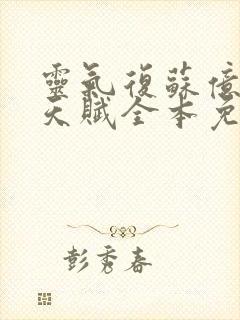 靈氣復蘇億
天賦全本免
彭秀春